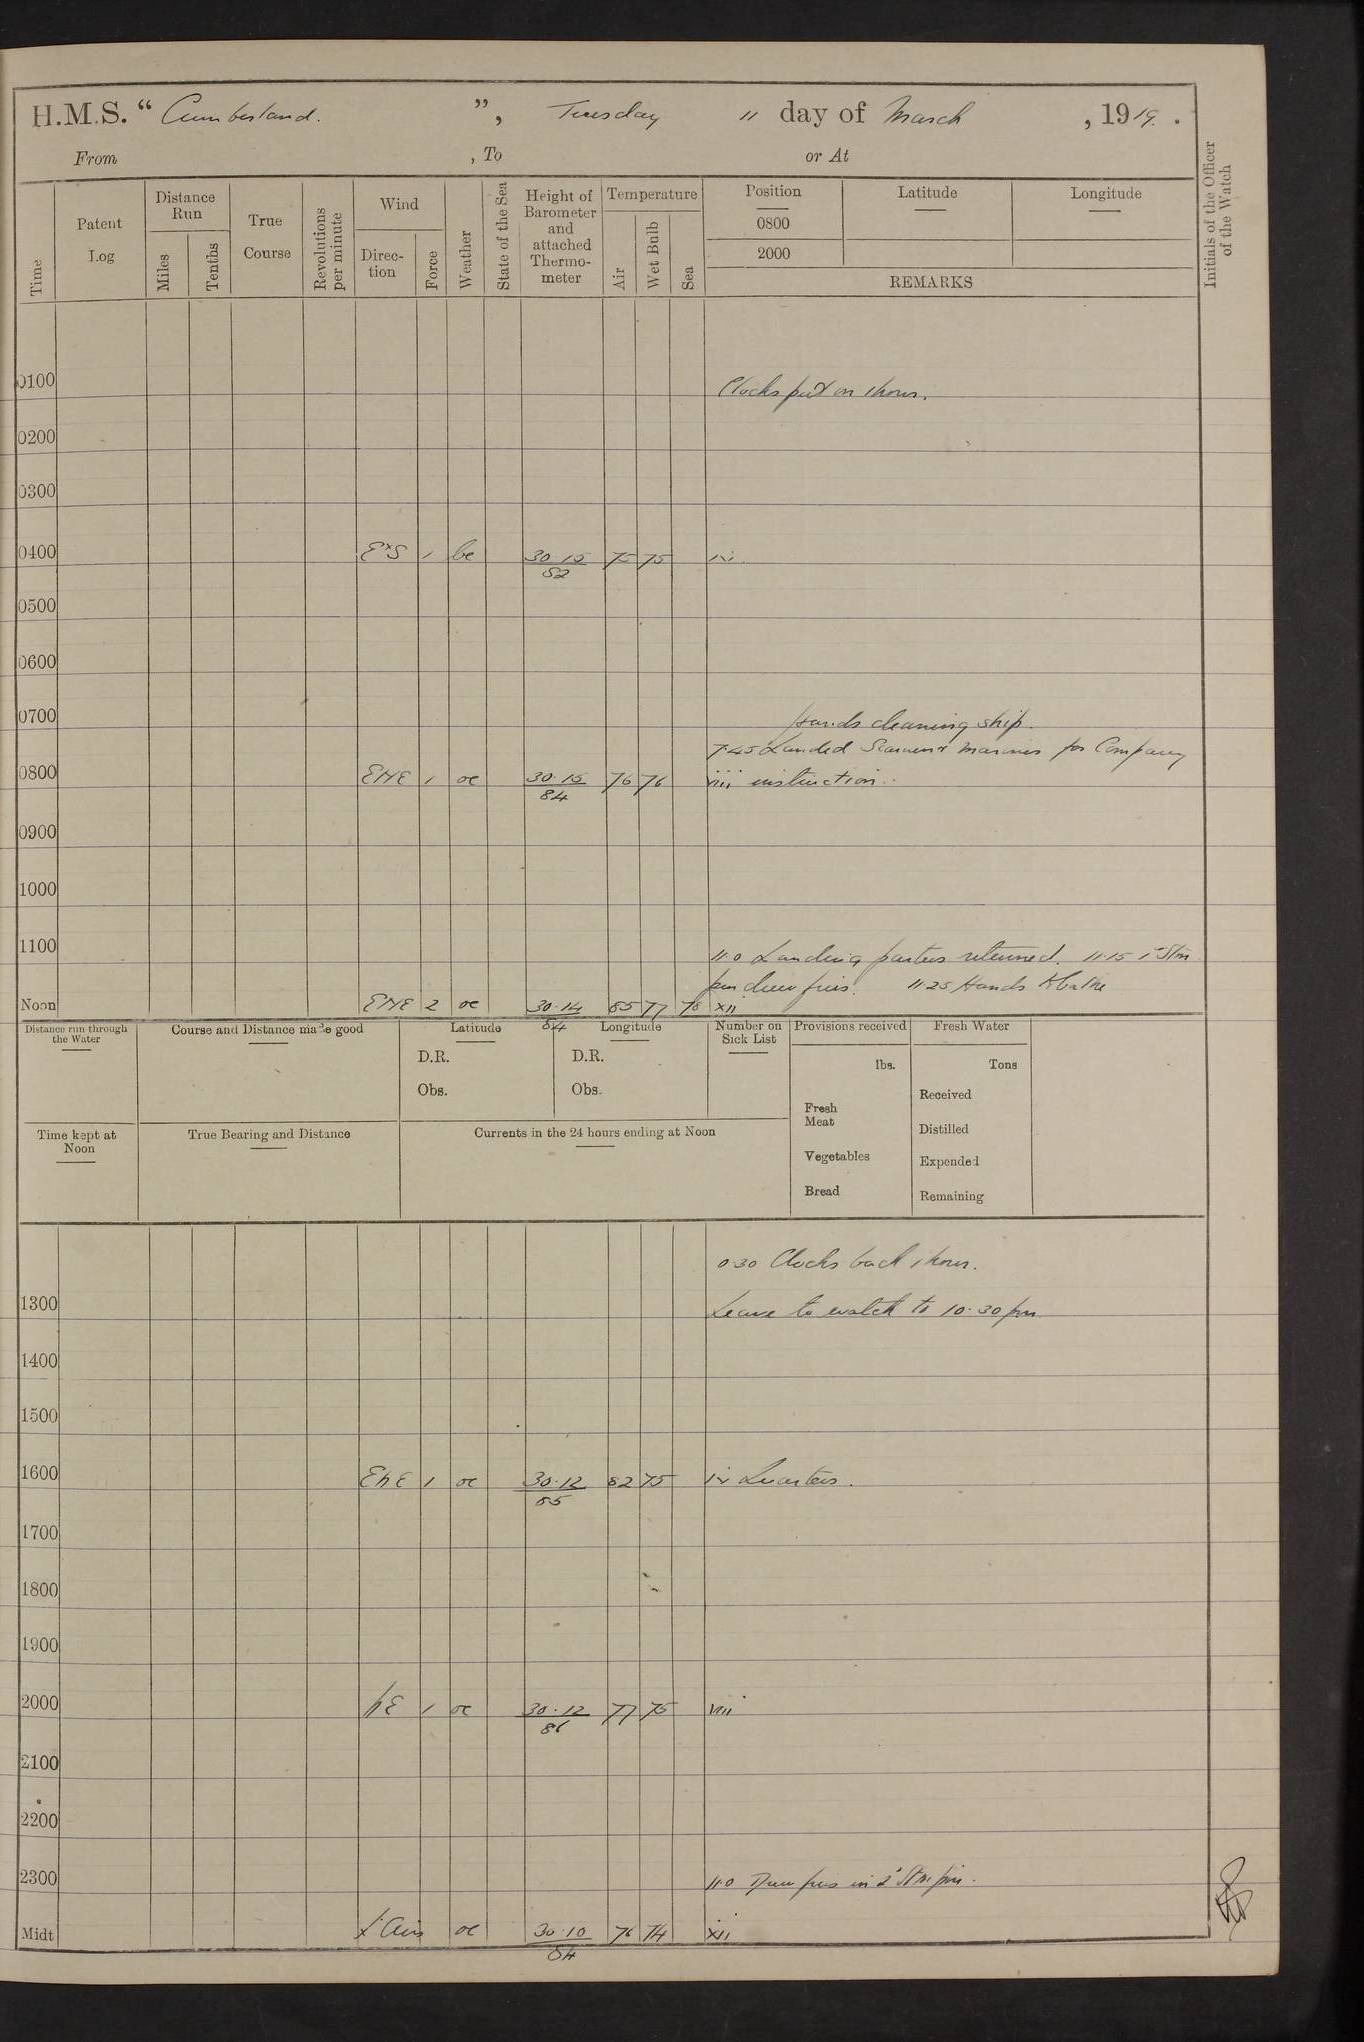 H.M.S. " Cumberland. ", Tuesday 11 day of March, 1919.
From , To or At
Time
Patent Log
Distance Run
Miles
Tenths
True Course
Revolutions per minute
Wind
Direction
Force
Weather
State of the Sea
Height of Barometer and attached Thermometer
Temperature
Air
Wet Bulb
Sea
Position
0800
2000
Latitude
Longitude
REMARKS
Initials of the Officer of the Watch
0100
Clocks put on 1 hour.
0200
0300
0400 ExS 1 bc 30.15 75 75 iv
82
0500
0600
0700 Hands cleaning ship.
7.45 Landed Seamen & Marines for Company
0800 ENE 1 oc 30.15 76 76 viii instruction.
84
0900
1000
1100
11.0 Landing parties returned. 11.15 Stm
pin drew fires. 11.25 Hands to bathe
Noon ENE 2 oc 30.14 85 77 78 xii
84
Distance run through the Water
Course and Distance made good
Latitude
D.R.
Obs.
Longitude
D.R.
Obs.
Number on Sick List
Provisions received
lbs.
Fresh Meat
Vegetables
Bread
Fresh Water
Tons
Received
Distilled
Expended
Remaining
Time kept at Noon
True Bearing and Distance
Currents in the 24 hours ending at Noon
0.30 Clocks back 1 hour.
1300 Leave to watch to 10.30 pm
1400
1500
1600 ENE 1 oc 30.12 82 75 iv Quarters.
85
1700
1800
1900
2000 NE 1 oc 30.12 77 75 viii
86
2100
2200
2300
11.0 Drew fires in 2 Stm pin.
Midt Lt Airs oc 30.10 76 74 xii
84